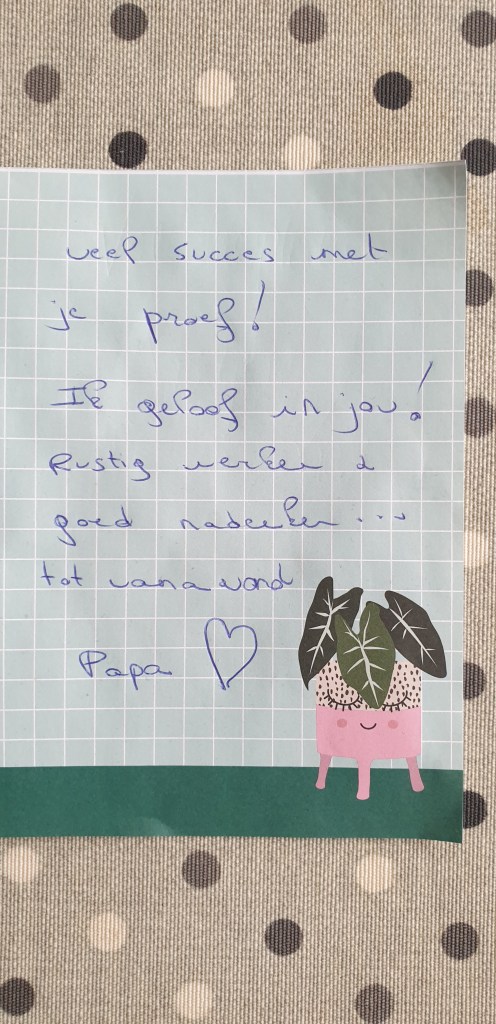 veel succes met
je proef!
Ik geloof in jou!
Rustig werken &
goed nadenken...
tot vanavond
Papa